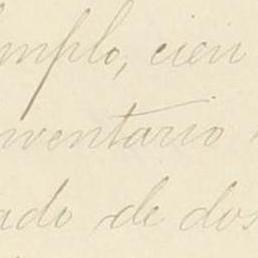 emplo, cien
inventario
ado de dos